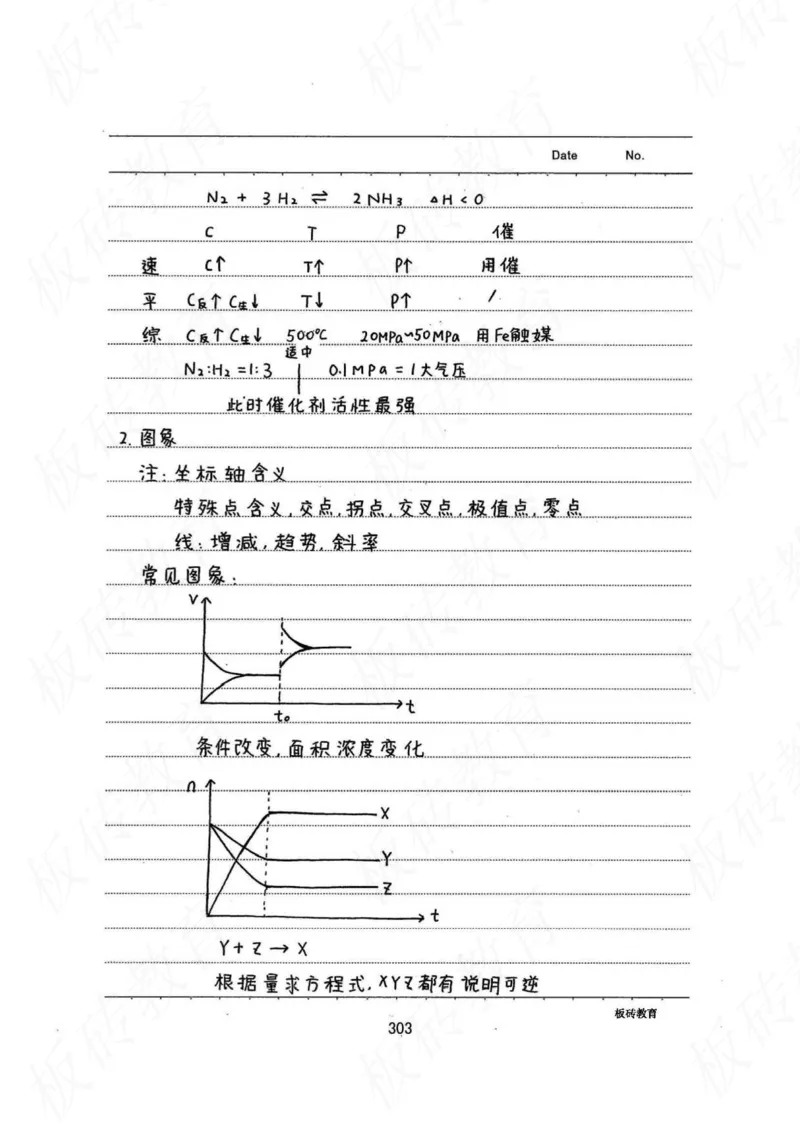 Date No.
N₂ + 3H₂ ⇌ 2NH₃ △H<0
C T P 催
速 C↑ T↑ P↑ 用催
平 C反↑ C生↓ T↓ P↑ /
综 C反↑ C生↓ 500℃ 20MPa~50MPa 用Fe触媒
适中
N₂:H₂=1:3 0.1MPa=1大气压
此时催化剂活性最强
2. 图象
注:坐标轴含义
特殊点含义,交点,拐点,交叉点,极值点,零点
线:增减,趋势,斜率
常见图象:
V
t
t₀
条件改变,面积浓度变化
n
X
Y
Z
t
Y+Z→X
根据量求方程式,XYZ都有说明可逆
板砖教育
303
板砖教育